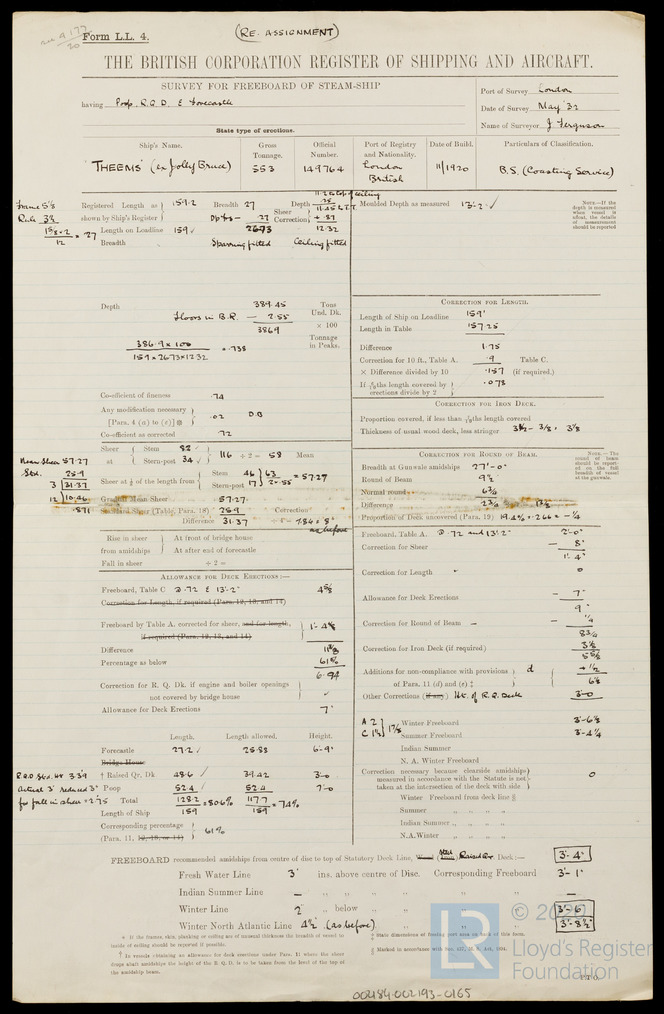 Form L.L. 4.
(RE. ASSIGNMENT)
THE BRITISH CORPORATION REGISTER OF SHIPPING AND AIRCRAFT.
SURVEY FOR FREEBOARD OF STEAM-SHIP
having Poop, R.Q.D. & Forecastle
State type of erections.
Port of Survey London
Date of Survey May '32
Name of Surveyor J. Ferguson
Ship's Name. Gross Tonnage. Official Number. Port of Registry and Nationality. Date of Build. Particulars of Classification.
"THEEMS" (ex Jolly Bruce) 553 149764 London British 11/1920 B.S. (Coasting Service)
Registered Length as shown by Ship's Register 159.2 Breadth 27 Depth
Length on Loadline 159 26.73 12.32
Breadth Sparring fitted Ceiling fitted
Moulded Depth as measured 13'.2"
NOTE.—If the depth is measured when vessel is afloat, the details of measurement should be reported
Depth 389.45 Tons Und. Dk.
Floors in B.R. — 2.55 × 100
386.9 Tonnage in Peaks.
386.9 × 100 = .738
159 × 26.73 × 12.32
Co-efficient of fineness .74
Any modification necessary .02 D.B
[Para. 4 (a) to (e)]
Co-efficient as corrected .72
CORRECTION FOR LENGTH.
Length of Ship on Loadline 159'
Length in Table 157.25
Difference 1.75
Correction for 10 ft., Table A. .9 Table C.
× Difference divided by 10 .157 (if required.)
If 6/10ths length covered by erections divide by 2 .078
CORRECTION FOR IRON DECK.
Proportion covered, if less than 7/10ths length covered
Thickness of usual wood deck, less stringer 3½ - 3/8 = 3⅛
Sheer at Stem 82 Stern-post 34 116 ÷ 2 = 58 Mean
Sheer at ⅛ of the length from Stem 46 Stern-post 17 63 ÷ 2.55 = 57.27
Gradual Mean Sheer 57.27
Standard Sheer (Table, Para. 18) 25.9 Correction
Difference 31.37 ÷ 4 = 7.84 = 8" as before
Mean Sheer 57.27
Std. 25.9
3 31.37
12 10.46
.871
CORRECTION FOR ROUND OF BEAM.
Breadth at Gunwale amidships 27'-0"
Round of Beam 9½
Normal round 6¾
Difference 2¾
Proportion of Deck uncovered (Para. 19) 19.4% = .266 = -¼
NOTE.—The round of beam should be reported on the full breadth of vessel at the gunwale.
Rise in sheer from amidships At front of bridge house
At after end of forecastle
Fall in sheer ÷ 2 =
Freeboard, Table A. @ .72 and 13'.2" 2'-0"
Correction for Sheer — 8"
1'. 4"
Correction for Length 0
Allowance for Deck Erections — 7"
9"
Correction for Round of Beam — ¼
8¾
Correction for Iron Deck (if required) 3⅛
5⅝
Additions for non-compliance with provisions of Para. 11 (d) and (e) d + ½
6⅛
Other Corrections (if any) Ht. of R.Q. Deck 3'-0
ALLOWANCE FOR DECK ERECTIONS:—
Freeboard, Table C @ .72 & 13'.2" 4⅝
Correction for Length, if required (Para. 12, 13, and 14)
Freeboard by Table A. corrected for sheer, and for length, if required (Para. 12, 13, and 14) 1'. 4⅛
Difference 11⅜
Percentage as below 61%
6.94
Correction for R. Q. Dk. if engine and boiler openings not covered by bridge house
Allowance for Deck Erections 7"
Length. Length allowed. Height.
Forecastle 27.2 25.88 6'-9"
Bridge House
† Raised Qr. Dk 48.6 39.42 3'-0
Poop 52.4 52.4 7'-0
Total 128.2 = 80.6% 117.7 = 74%
Length of Ship 159 159
Corresponding percentage (Para. 11, 12, 13, or 14) 61%
R.Q.D Std. Ht 3.39
Actual 3' reduced 3"
for fall in sheer = 2.75
Winter Freeboard 3'-6⅛
Summer Freeboard 3'-4¼
Indian Summer
N. A. Winter Freeboard
Correction necessary because clearside amidships measured in accordance with the Statute is not taken at the intersection of the deck with side 0
Winter Freeboard from deck line
Summer „ „ „
Indian Summer „ „ „
N.A. Winter „ „ „
FREEBOARD recommended amidships from centre of disc to top of Statutory Deck Line, Wood (Steel) Raised Qr. Deck:— 3'- 4"
Fresh Water Line 3" ins. above centre of Disc. Corresponding Freeboard 3'- 1"
Indian Summer Line — „ „ „ „ —
Winter Line 2" „ below „ „ „ 3'- 6"
Winter North Atlantic Line 4½ (as before) „ „ 3'- 8½"
* If the frames, skin, planking or ceiling are of unusual thickness the breadth of vessel to inside of ceiling should be reported if possible.
† In vessels obtaining an allowance for deck erections under Para. 11 where the sheer drops abaft amidships the height of the R. Q. D. is to be taken from the level of the top of the amidship beam.
‡ State dimensions of freeing port area on back of this form.
P.T.O.
002184-002193-0165
© 20
LR
Lloyd's Register
Foundation